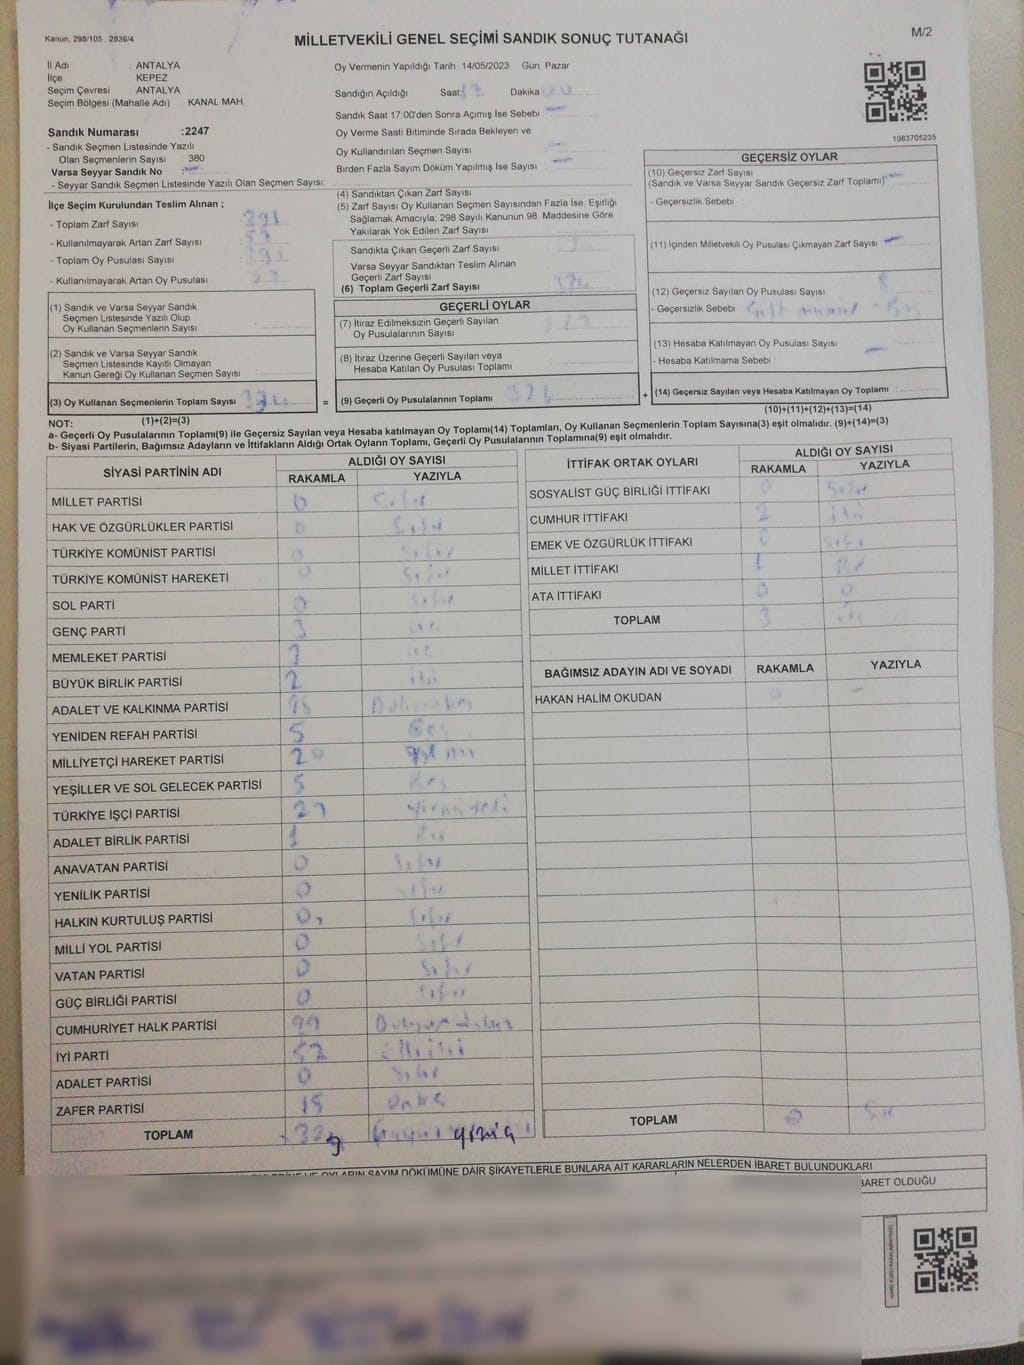 Kanun, 298/105 . 2839/4
M/2
MİLLETVEKİLİ GENEL SEÇİMİ SANDIK SONUÇ TUTANAĞI
İl Adı : ANTALYA
İlçe : KEPEZ
Seçim Çevresi : ANTALYA
Seçim Bölgesi (Mahalle Adı) KANAL MAH.
Sandık Numarası :2247
- Sandık Seçmen Listesinde Yazılı
Olan Seçmenlerin Sayısı : 380
Varsa Seyyar Sandık No
- Seyyar Sandık Seçmen Listesinde Yazılı Olan Seçmen Sayısı :
Oy Vermenin Yapıldığı Tarih : 14/05/2023 Gün: Pazar
Sandığın Açıldığı Saat: 17 Dakika 00
Sandık Saat 17:00'den Sonra Açımış İse Sebebi
Oy Verme Saati Bitiminde Sırada Bekleyen ve
Oy Kullandırılan Seçmen Sayısı
Birden Fazla Sayım Döküm Yapılmış İse Sayısı
1083705235
İlçe Seçim Kurulundan Teslim Alınan ;
- Toplam Zarf Sayısı : 391
- Kullanılmayarak Artan Zarf Sayısı :
- Toplam Oy Pusulası Sayısı : 391
- Kullanılmayarak Artan Oy Pusulası :
(1) Sandık ve Varsa Seyyar Sandık
Seçmen Listesinde Yazılı Olup
Oy Kullanan Seçmenlerin Sayısı :
(2) Sandık ve Varsa Seyyar Sandık
Seçmen Listesinde Kayıtlı Olmayan
Kanun Gereği Oy Kullanan Seçmen Sayısı :
(3) Oy Kullanan Seçmenlerin Toplam Sayısı :
(1)+(2)=(3)
(4) Sandıktan Çıkan Zarf Sayısı
(5) Zarf Sayısı Oy Kullanan Seçmen Sayısından Fazla İse, Eşitliği
Sağlamak Amacıyla; 298 Sayılı Kanunun 98. Maddesine Göre
Yakılarak Yok Edilen Zarf Sayısı
Sandıkta Çıkan Geçerli Zarf Sayısı
Varsa Seyyar Sandıktan Teslim Alınan
Geçerli Zarf Sayısı
(6) Toplam Geçerli Zarf Sayısı
GEÇERLİ OYLAR
(7) İtiraz Edilmeksizin Geçerli Sayılan
Oy Pusulalarının Sayısı
(8) İtiraz Üzerine Geçerli Sayılan veya
Hesaba Katılan Oy Pusulası Toplamı
= (9) Geçerli Oy Pusulalarının Toplamı
GEÇERSİZ OYLAR
(10) Geçersiz Zarf Sayısı
(Sandık ve Varsa Seyyar Sandık Geçersiz Zarf Toplamı)
- Geçersizlik Sebebi
(11) İçinden Milletvekili Oy Pusulası Çıkmayan Zarf Sayısı
(12) Geçersiz Sayılan Oy Pusulası Sayısı 8
- Geçersizlik Sebebi
(13) Hesaba Katılmayan Oy Pusulası Sayısı :
- Hesaba Katılmama Sebebi
+ (14) Geçersiz Sayılan veya Hesaba Katılmayan Oy Toplamı :
(10)+(11)+(12)+(13)=(14)
NOT:
a- Geçerli Oy Pusulalarının Toplamı(9) ile Geçersiz Sayılan veya Hesaba katılmayan Oy Toplamı(14) Toplamları, Oy Kullanan Seçmenlerin Toplam Sayısına(3) eşit olmalıdır. (9)+(14)=(3)
b- Siyasi Partilerin, Bağımsız Adayların ve İttifakların Aldığı Ortak Oyların Toplamı, Geçerli Oy Pusulalarının Toplamına(9) eşit olmalıdır.
SİYASİ PARTİNİN ADI ALDIĞI OY SAYISI
RAKAMLA YAZIYLA
MİLLET PARTİSİ 0 Sıfır
HAK VE ÖZGÜRLÜKLER PARTİSİ 0 Sıfır
TÜRKİYE KOMÜNİST PARTİSİ 0 Sıfır
TÜRKİYE KOMÜNİST HAREKETİ 0 Sıfır
SOL PARTİ 0 Sıfır
GENÇ PARTİ 3
MEMLEKET PARTİSİ
BÜYÜK BİRLİK PARTİSİ 2 iki
ADALET VE KALKINMA PARTİSİ 95
YENİDEN REFAH PARTİSİ 5 Beş
MİLLİYETÇİ HAREKET PARTİSİ 20
YEŞİLLER VE SOL GELECEK PARTİSİ 5 Beş
TÜRKİYE İŞÇİ PARTİSİ 27 yirmi yedi
ADALET BİRLİK PARTİSİ 1 Bir
ANAVATAN PARTİSİ 0 Sıfır
YENİLİK PARTİSİ 0 Sıfır
HALKIN KURTULUŞ PARTİSİ 0 Sıfır
MİLLİ YOL PARTİSİ 0 Sıfır
VATAN PARTİSİ 0 Sıfır
GÜÇ BİRLİĞİ PARTİSİ 0 Sıfır
CUMHURİYET HALK PARTİSİ 99
İYİ PARTİ 52 Elli iki
ADALET PARTİSİ 0 Sıfır
ZAFER PARTİSİ 15
TOPLAM
İTTİFAK ORTAK OYLARI ALDIĞI OY SAYISI
RAKAMLA YAZIYLA
SOSYALİST GÜÇ BİRLİĞİ İTTİFAKI 0 Sıfır
CUMHUR İTTİFAKI 2 iki
EMEK VE ÖZGÜRLÜK İTTİFAKI 0 Sıfır
MİLLET İTTİFAKI 1 Bir
ATA İTTİFAKI 0 0
TOPLAM 3
BAĞIMSIZ ADAYIN ADI VE SOYADI RAKAMLA YAZIYLA
HAKAN HALİM OKUDAN
TOPLAM
OYLARIN SAYIM DÖKÜMÜNE DAİR ŞİKAYETLERLE BUNLARA AİT KARARLARIN NELERDEN İBARET BULUNDUKLARI
İBARET OLDUĞU